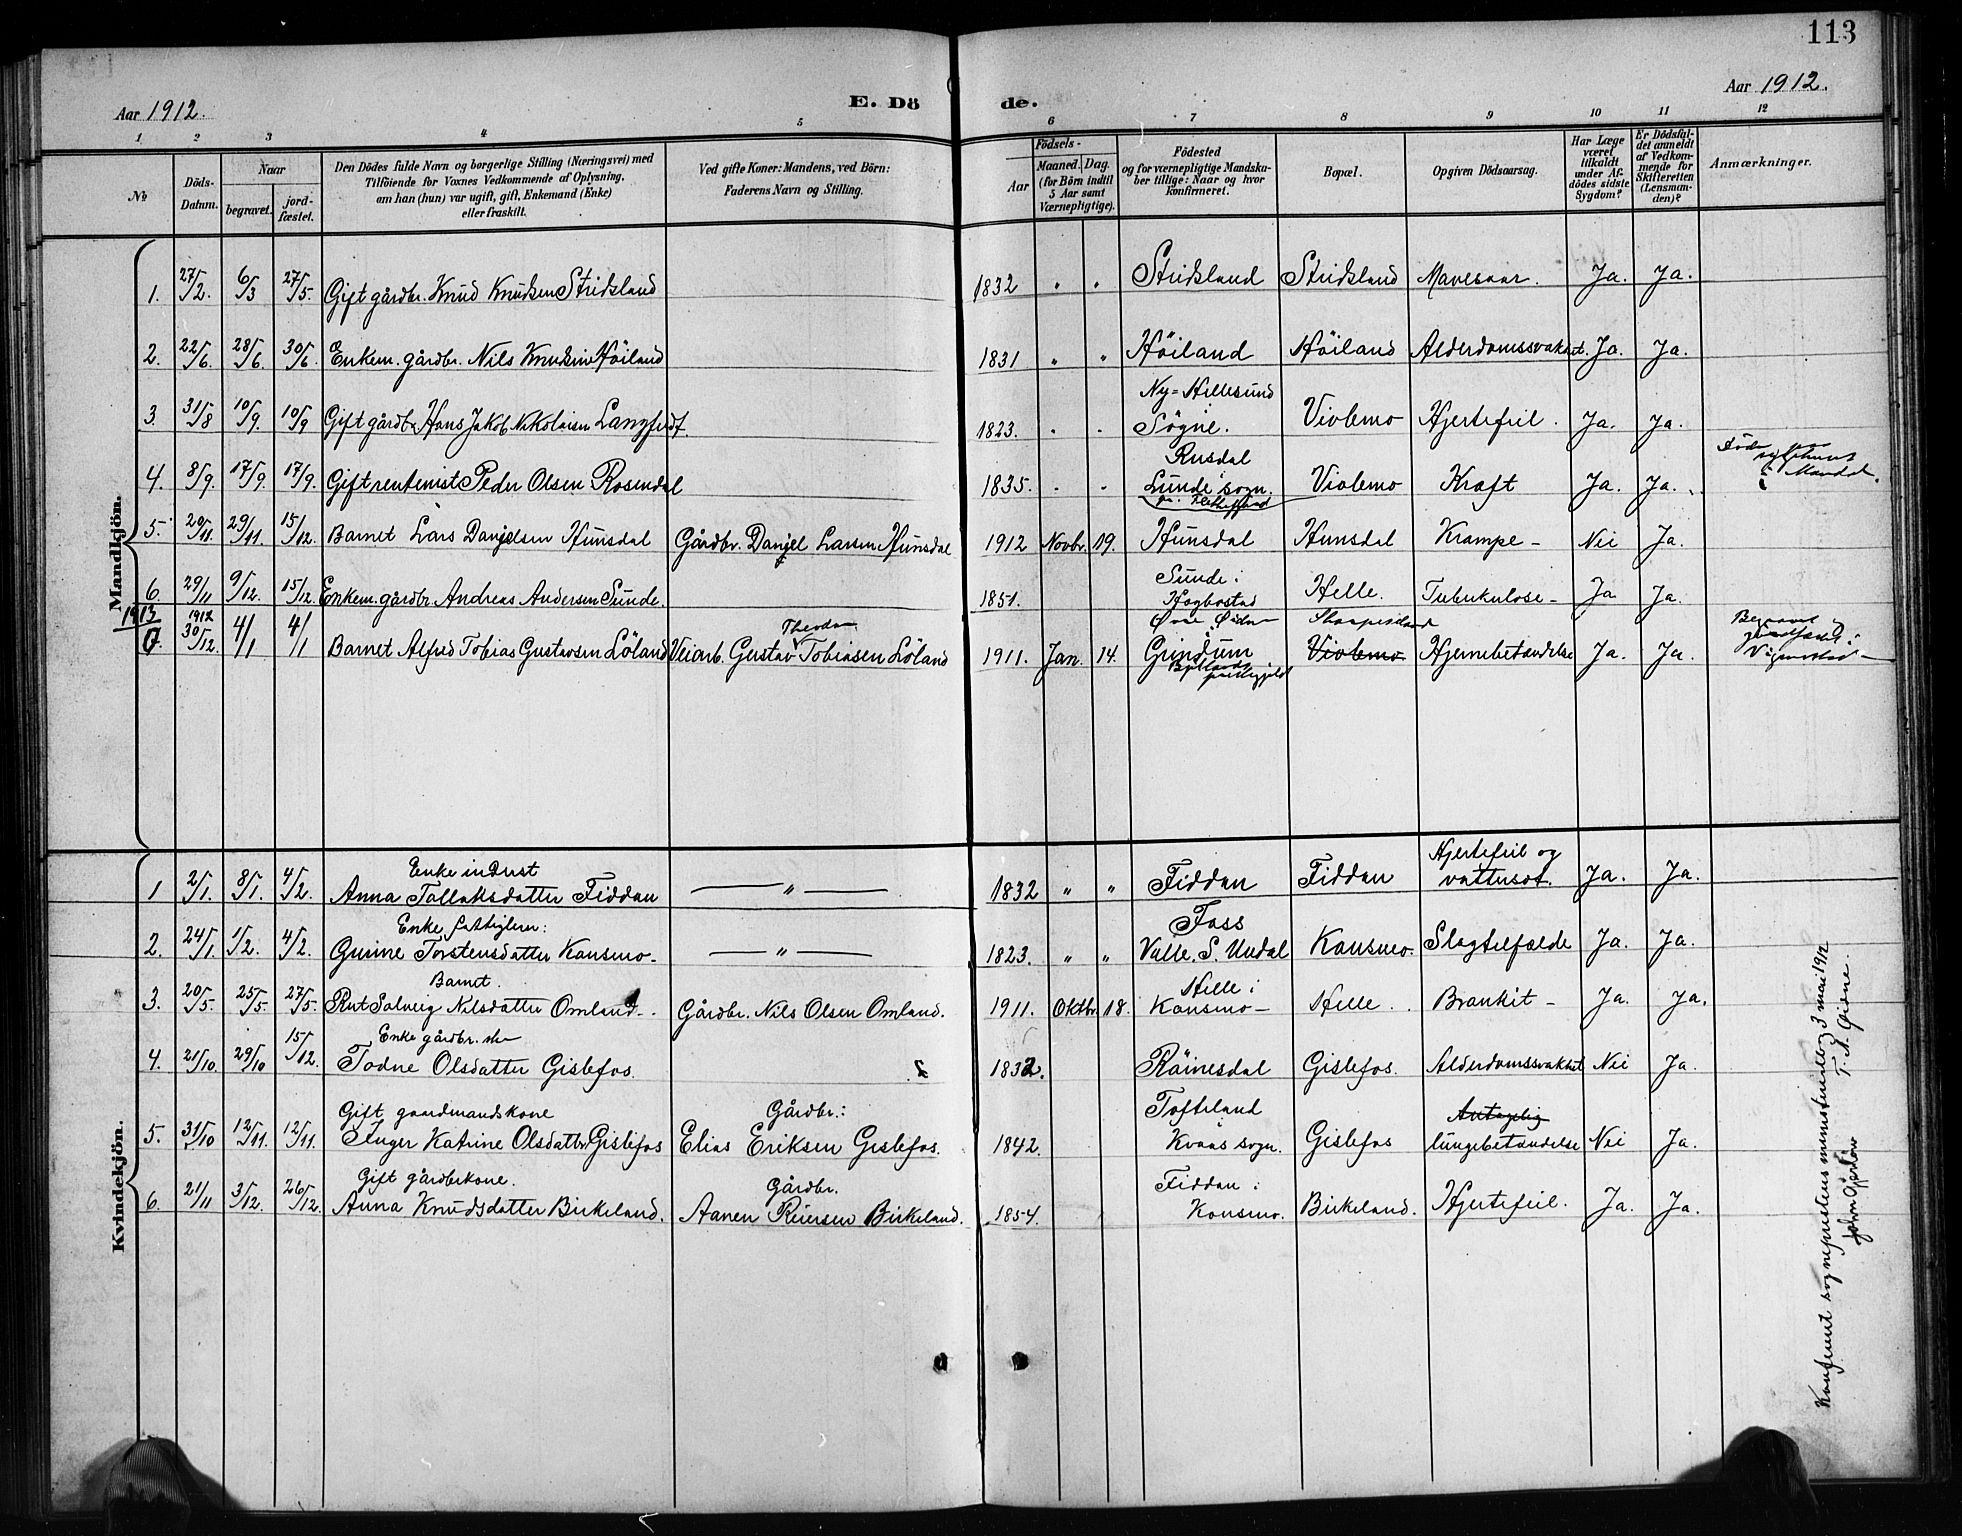 113
Aar 1912.
E. Dö
de.
Aar 1912.
1 2 3 4 5 6 7 8 9 10 11 12
No
Döds-Datum.
Naar
begravet.
jord-fæstet.
Den Dödes fulde Navn og borgerlige Stilling (Næringsvei) med
Tilföiende for Voxnes Vedkommende af Oplysning,
om han (hun) var ugift, gift, Enkemand (Enke)
eller fraskilt.
Ved gifte Koner: Mandens, ved Börn:
Faderens Navn og Stilling.
Födsels-
Aar
Maaned. Dag.
(for Börn indtil
5 Aar samt
Værnepligtige).
Födested
og for værnepligtige Mandska-
ber tillige: Naar og hvor
Konfirmeret.
Bopæl.
Opgiven Dödsaarsag.
Har Læge
været
tilkaldt
under Af-
dödes sidste
Sygdom?
Er Dödsfal-
det anmeldt
af Vedkom-
mende for
Skifteretten
(Lensman-
den)?
Anmærkninger.
Mandkjön.
1. 27/2. 6/3 27/5. Gift gårdbr. Knud Knudsen Stridsland 1832 " " Stridsland Stridsland Mavesaar. Ja. Ja.
2. 22/6. 28/6. 30/6. Enkem. gårdbr. Nils Knudsen Höiland 1831 " " Höiland Höiland Alderdomssvakhet. Ja. Ja.
Ny=Hellesund
3. 31/8 10/9. 10/9 Gift gårdbr. Hans Jakob Nikolaisen Langfeldt. 1823. " " Sögne. Viblemo Hjertefeil. Ja. Ja.
Rusdal
4. 8/9. 17/9. 17/9. Gift rentenist Peder Olsen Rosendal 1835. " " Lunde sogn. Viblemo Kræft Ja. Ja.
i Mandal.
5. 20/11. 29/11. 15/12. Barnet Lars Danjelsen Hunsdal Gårdbr. Danjel Larsen Hunsdal 1912 Novbr. 19. Hunsdal Hunsdal Krampe - Nei Ja.
Sunde i
6. 29/11 9/12. 15/12. Enkem. gårdbr. Andreas Andersen Sunde. 1851. Hægbostad Helle. Tuberkulose - Ja Ja.
1913 1912
Theodor
Øvre Øidne
7. 30/12. 4/1 4/1 Barnet Alfred Tobias Gustavsen Löland Veiarb. Gustav Tobiasen Löland 1911. Jan. 14. Grindum Viblemo Hjernebetændelse Ja. Ja.
Bjelland
præstegjeld
Begravet og
jordfæstet i
Vigmostad -
Kvindekjön.
Enke inderst Hjertefeil og
1 2/1. 8/1. 4/2. Anna Tollaksdatter Fiddan — " — 1832 " " Fiddan Fiddan vattersot. Ja. Ja.
Enke fattiglem: Foss
2. 24/1. 1/2. 4/2. Gurine Torstensdatter Konsmo - — " — 1823. " " Valle. S. Undal Konsmo. Slagtilfælde Ja. Ja.
Barnet. Helle i
3. 20/5 25/5 27/5. Rut Solveig Nilsdatter Omland - Gårdbr. Nils Olsen Omland. 1911. Oktbr. 18. Konsmo - Helle. Bronkit - Ja. Ja.
Enke gårdbr. ske
4. 21/10 29/10 15/12. Todne Olsdatter Gislefos. 1832. Röinesdal Gislefos. Alderdomssvakhet Nei Ja.
Gift gaardmandskone Gårdbr.: Tofteland Antagelig
5. 31/10 12/11. 12/11. Inger Katrine Olsdatter Gislefos Elias Eriksen Gislefos. 1842. Kvaas sogn. Gislefos lungebetændelse Nei Ja.
Gift gårdbrkone. Gårdbr. Fiddan i
6. 21/11 3/12. 26/12. Anna Knudsdatter Birkeland. Aanen Reiersen Birkeland. 1854. Konsmo. Birkeland. Hjertefeil. Ja. Ja.
Konferert sogneprestens ministerialbog 3 mai 1912
T. A. Øidne.